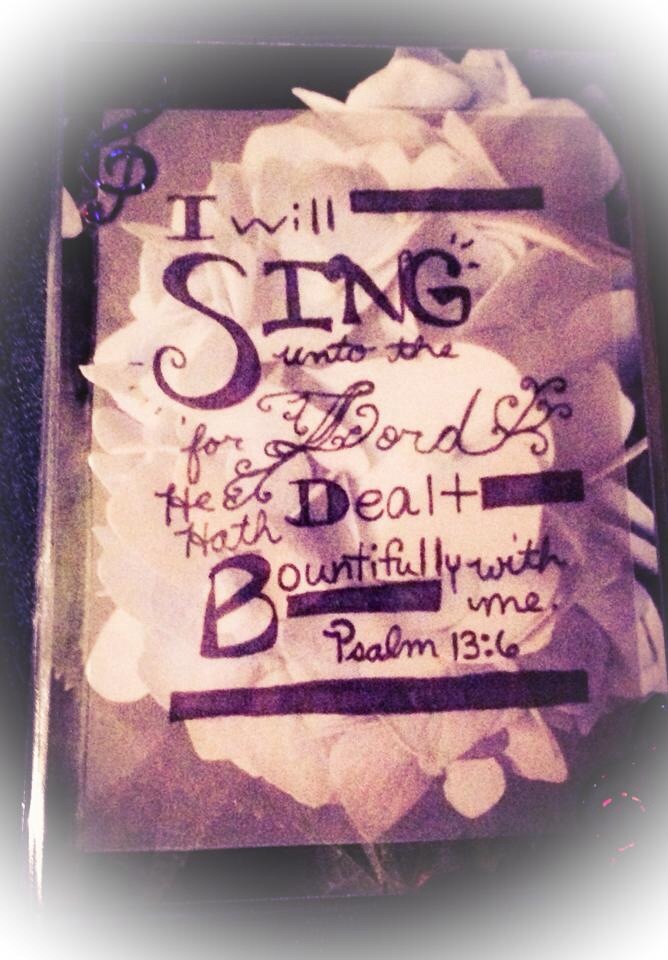 I will
SING
unto the
Lord
for
He Dealt
Hath
Bountifully with
me.
Psalm 13:6